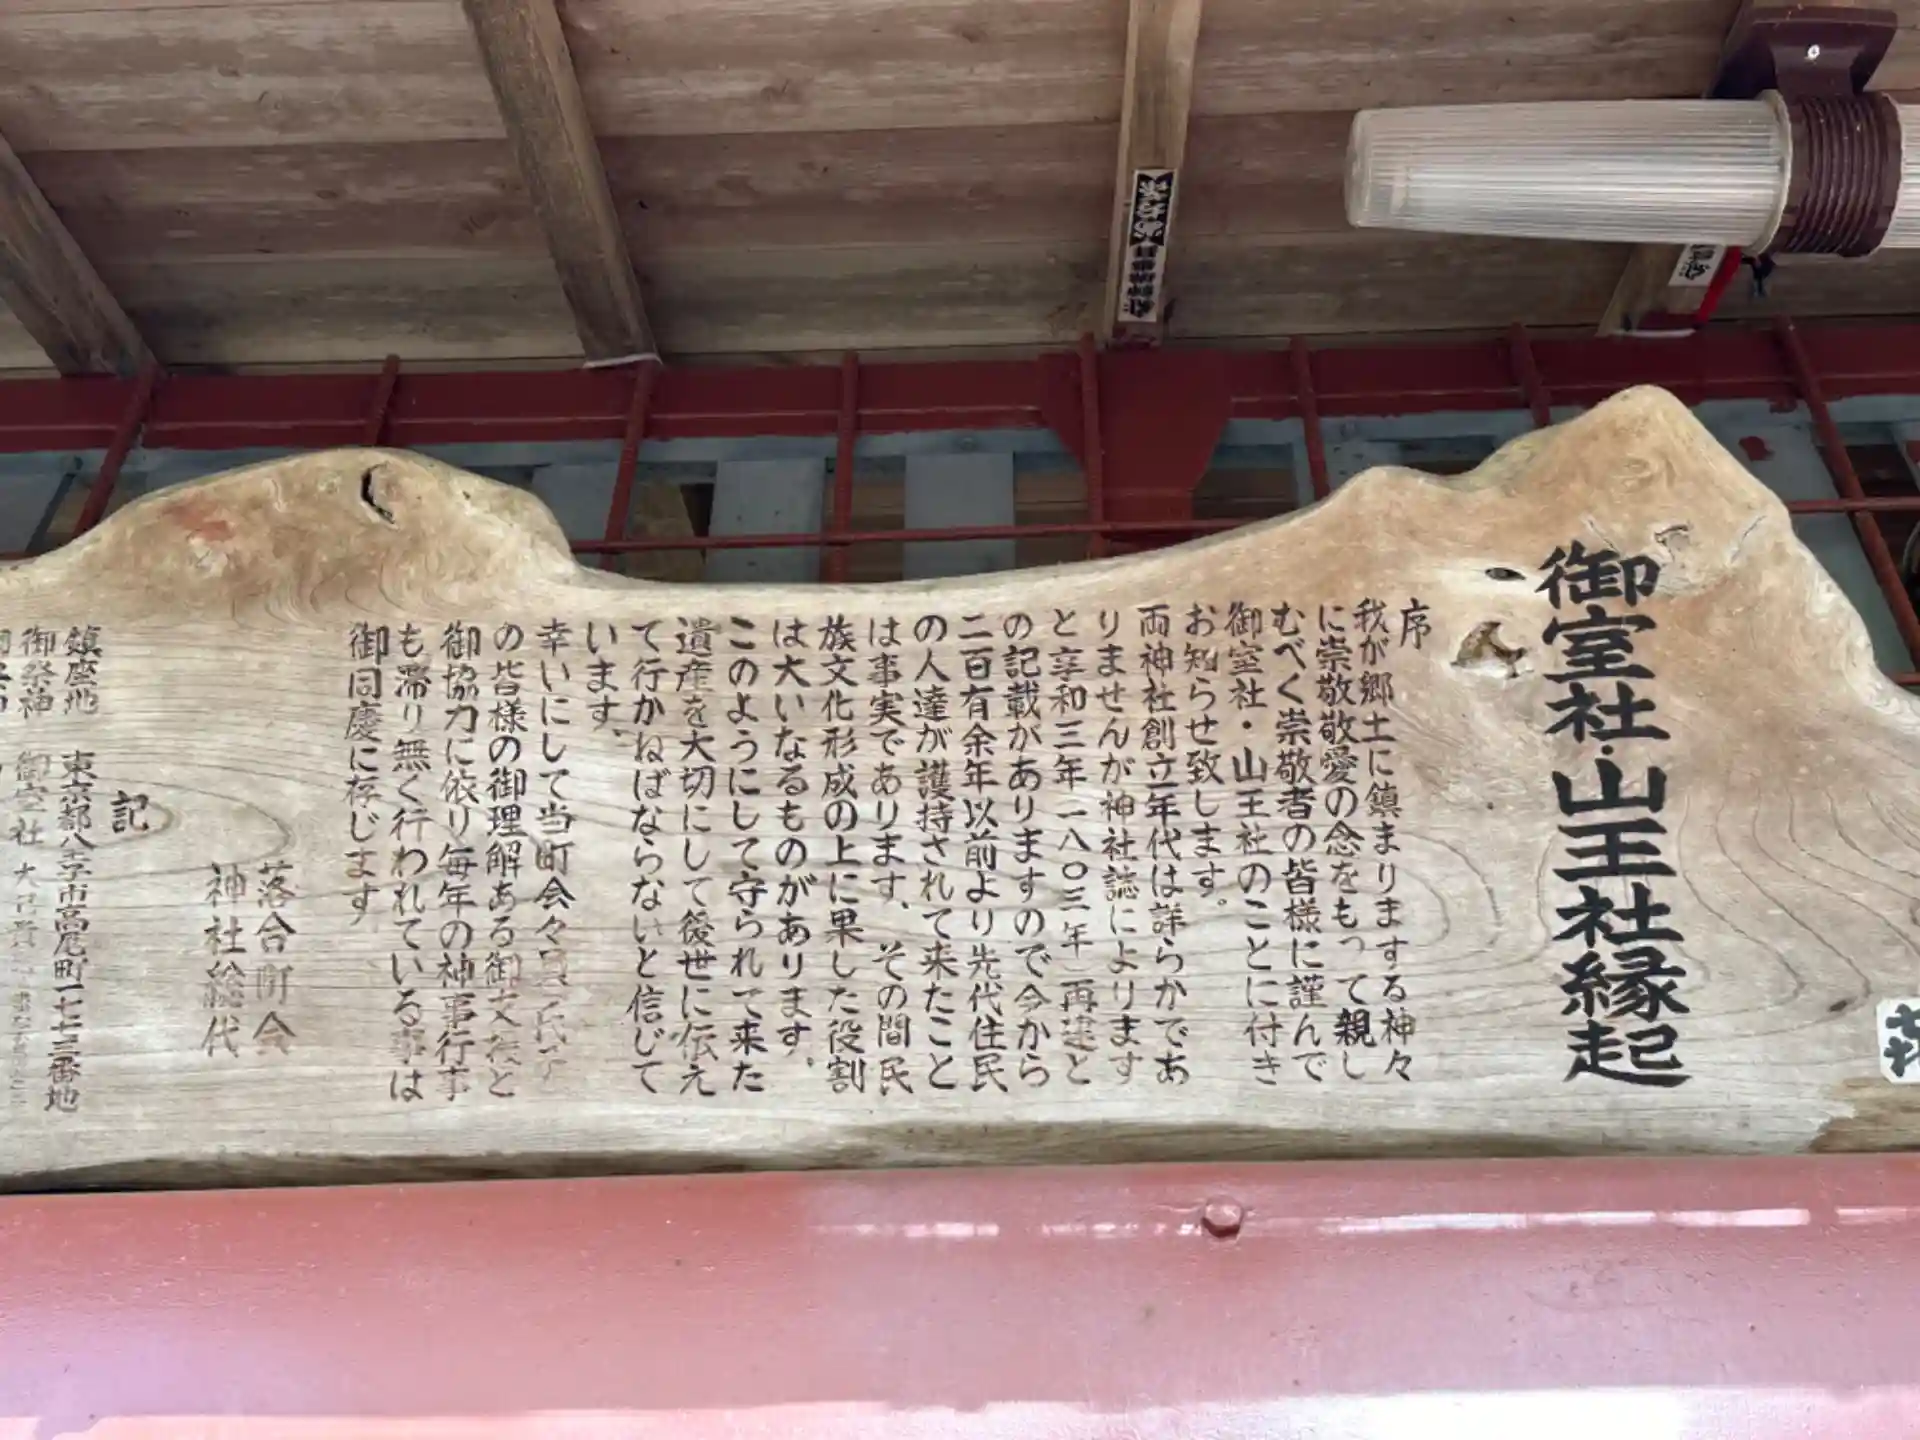 御室社・山王社縁起
序
我が郷土に鎮まりまする神々
に崇敬敬愛の念をもって親し
むべく崇敬者の皆様に謹んで
御室社・山王社のことに付き
お知らせ致します。
両神社創立年代は詳らかであ
りませんが神社誌によります
と享和三年(一八〇三年)再建と
の記載がありますので今から
二百有余年以前より先代住民
の人達が護持されて来たこと
は事実であります、その間民
族文化形成の上に果した役割
は大いなるものがあります。
このようにして守られて来た
遺産を大切にして後世に伝え
て行かねばならないと信じて
います、
幸いにして当町会々員、氏子
の皆様の御理解ある御支援と
御協力に依り毎年の神事行事
も滞り無く行われている事は
御同慶に存じます
落合町会
神社総代
記
鎮座地 東京都八王子市高尾町一七七三番地
御祭神 御室社